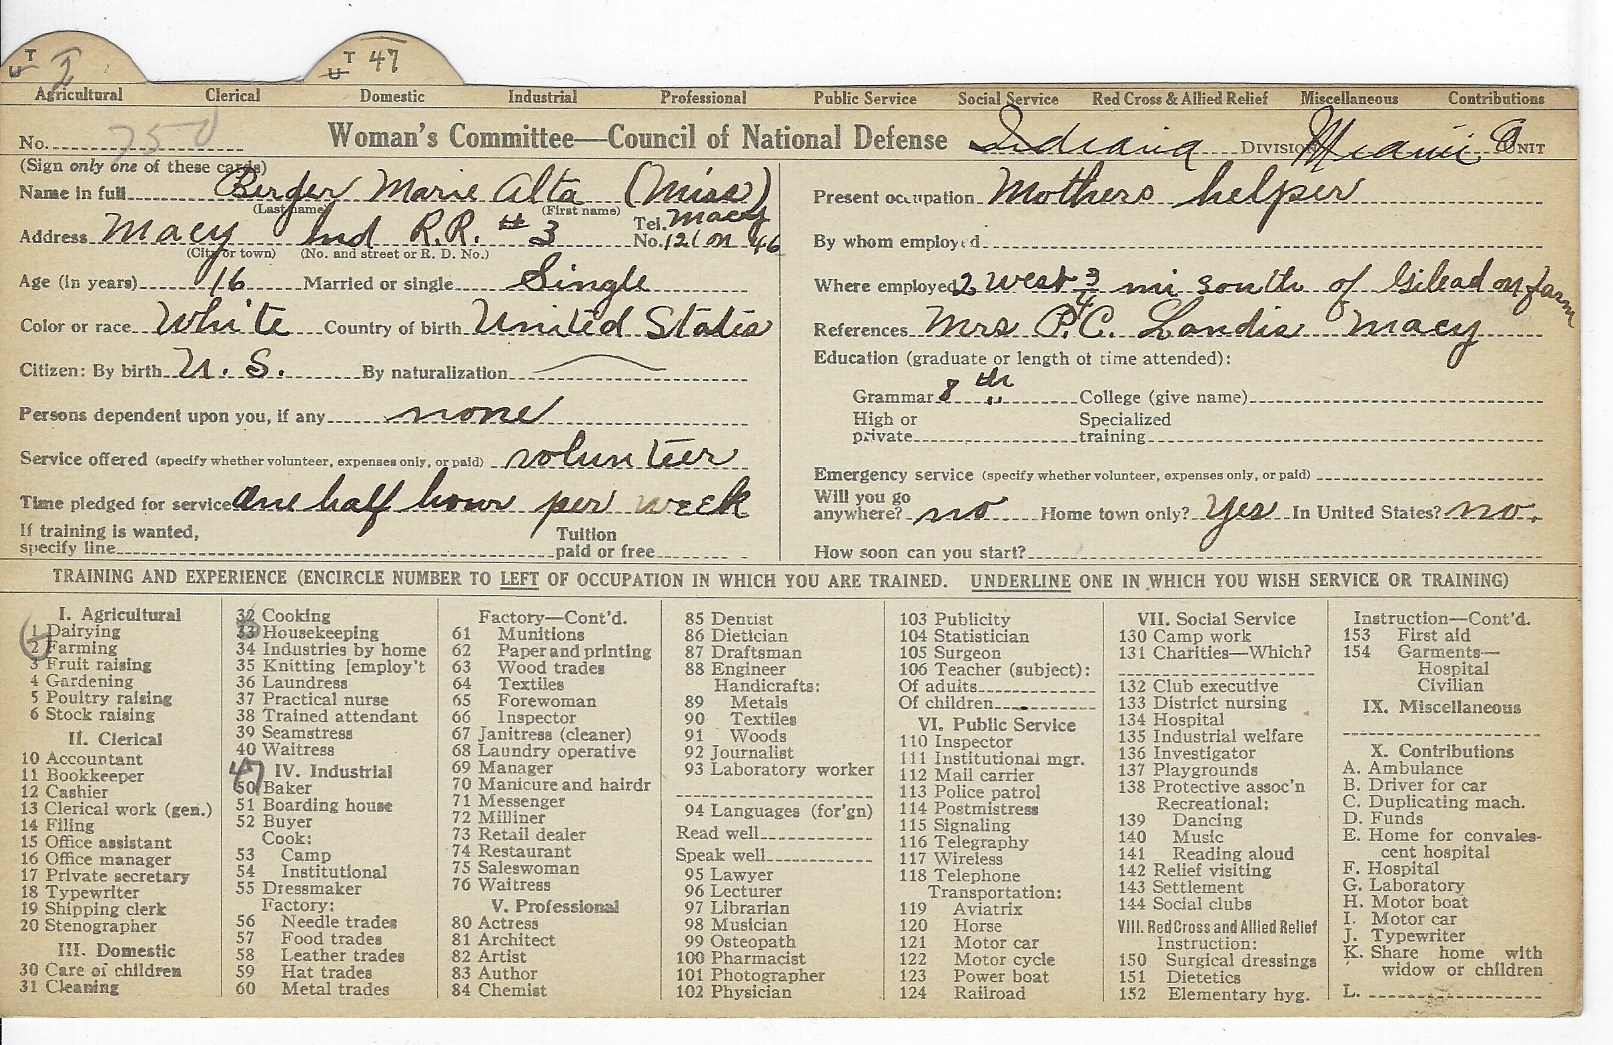 U T I
U T 47
Agricultural Clerical Domestic Industrial Professional Public Service Social Service Red Cross & Allied Relief Miscellaneous Contributions
No. 750 Woman's Committee—Council of National Defense Indiana DIVISION Miami Co UNIT
(Sign only one of these cards)
Name in full Berger Marie Alta (Miss)
(Last name) (First name)
Address Macy Ind R.R. # 3 Tel. No. Macy 12 on 46
(City or town) (No. and street or R. D. No.)
Age (in years) 16 Married or single Single
Color or race White Country of birth United States
Citizen: By birth U. S. By naturalization
Persons dependent upon you, if any none
Service offered (specify whether volunteer, expenses only, or paid) volunteer
Time pledged for service One half hour per week
If training is wanted, specify line Tuition paid or free
Present occupation Mothers helper
By whom employed
Where employed 2 west 3/4 mi south of Gilead on farm
References Mrs P.C. Landis Macy
Education (graduate or length of time attended):
Grammar 8th College (give name)
High or private Specialized training
Emergency service (specify whether volunteer, expenses only, or paid)
Will you go anywhere? no Home town only? Yes In United States? no.
How soon can you start?
TRAINING AND EXPERIENCE (ENCIRCLE NUMBER TO LEFT OF OCCUPATION IN WHICH YOU ARE TRAINED. UNDERLINE ONE IN WHICH YOU WISH SERVICE OR TRAINING)
I. Agricultural
1 Dairying
2 Farming
3 Fruit raising
4 Gardening
5 Poultry raising
6 Stock raising
II. Clerical
10 Accountant
11 Bookkeeper
12 Cashier
13 Clerical work (gen.)
14 Filing
15 Office assistant
16 Office manager
17 Private secretary
18 Typewriter
19 Shipping clerk
20 Stenographer
III. Domestic
30 Care of children
31 Cleaning
32 Cooking
33 Housekeeping
34 Industries by home
35 Knitting [employ't
36 Laundress
37 Practical nurse
38 Trained attendant
39 Seamstress
40 Waitress
47 IV. Industrial
50 Baker
51 Boarding house
52 Buyer
Cook:
53 Camp
54 Institutional
55 Dressmaker
Factory:
56 Needle trades
57 Food trades
58 Leather trades
59 Hat trades
60 Metal trades
Factory—Cont'd.
61 Munitions
62 Paper and printing
63 Wood trades
64 Textiles
65 Forewoman
66 Inspector
67 Janitress (cleaner)
68 Laundry operative
69 Manager
70 Manicure and hairdr
71 Messenger
72 Milliner
73 Retail dealer
74 Restaurant
75 Saleswoman
76 Waitress
V. Professional
80 Actress
81 Architect
82 Artist
83 Author
84 Chemist
85 Dentist
86 Dietician
87 Draftsman
88 Engineer
Handicrafts:
89 Metals
90 Textiles
91 Woods
92 Journalist
93 Laboratory worker
94 Languages (for'gn)
Read well
Speak well
95 Lawyer
96 Lecturer
97 Librarian
98 Musician
99 Osteopath
100 Pharmacist
101 Photographer
102 Physician
103 Publicity
104 Statistician
105 Surgeon
106 Teacher (subject):
Of adults
Of children
VI. Public Service
110 Inspector
111 Institutional mgr.
112 Mail carrier
113 Police patrol
114 Postmistress
115 Signaling
116 Telegraphy
117 Wireless
118 Telephone
Transportation:
119 Aviatrix
120 Horse
121 Motor car
122 Motor cycle
123 Power boat
124 Railroad
VII. Social Service
130 Camp work
131 Charities—Which?
132 Club executive
133 District nursing
134 Hospital
135 Industrial welfare
136 Investigator
137 Playgrounds
138 Protective assoc'n
Recreational:
139 Dancing
140 Music
141 Reading aloud
142 Relief visiting
143 Settlement
144 Social clubs
VIII. Red Cross and Allied Relief
Instruction:
150 Surgical dressings
151 Dietetics
152 Elementary hyg.
Instruction—Cont'd.
153 First aid
154 Garments—
Hospital
Civilian
IX. Miscellaneous
X. Contributions
A. Ambulance
B. Driver for car
C. Duplicating mach.
D. Funds
E. Home for convales-
cent hospital
F. Hospital
G. Laboratory
H. Motor boat
I. Motor car
J. Typewriter
K. Share home with
widow or children
L.